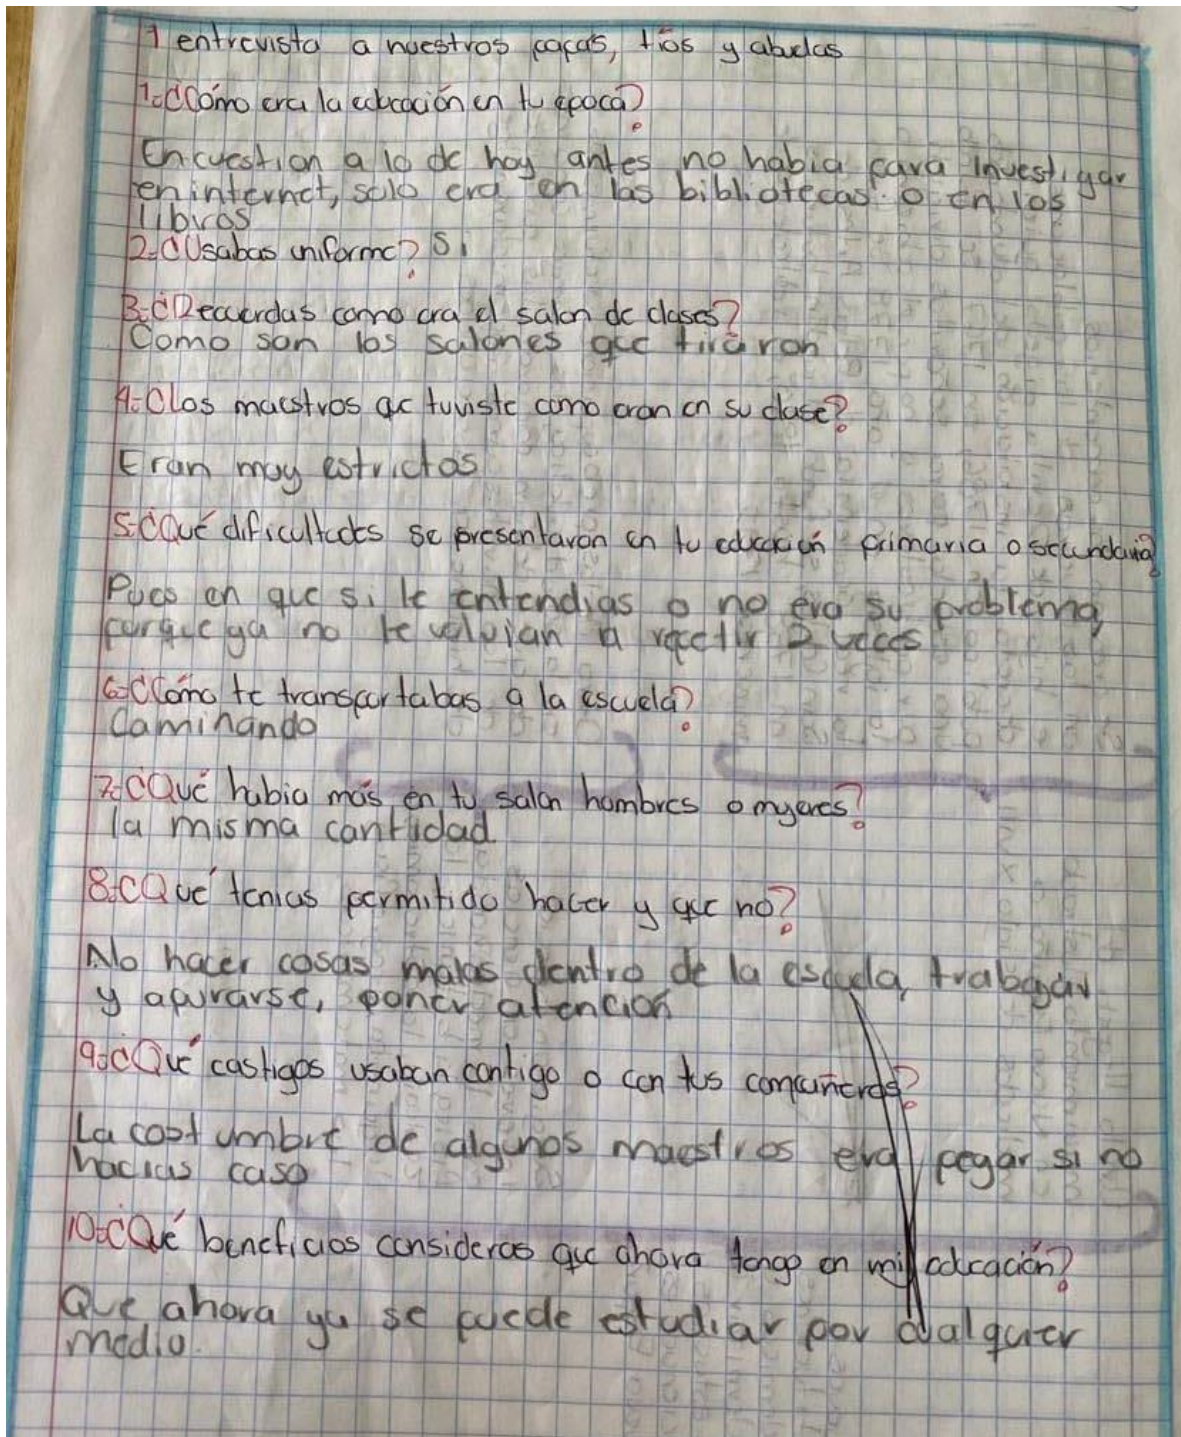 1 entrevista a nuestros papás, tíos y abuelas
1.-¿Cómo era la educación en tu época?
En cuestion a lo de hoy antes no habia para investigar
en internet, solo era en las bibliotecas o en los
libros
2.-¿Usabas uniforme? Si
3.-¿Recuerdas como era el salon de clases?
Como son los salones que tiraron
4.-¿los maestros que tuviste como eran en su clase?
Eran muy estrictos
5.-¿Qué dificultades se presentaron en tu educación primaria o secundaria?
Pues en que si le entendias o no era su problema,
porque ya no te volvian a repetir 2 veces
6.-¿Cómo te transportabas a la escuela?
Caminando
7.-¿Qué habia más en tu salon hombres o mujeres?
la misma cantidad
8.-¿Qué tenias permitido hacer y que no?
No hacer cosas malas dentro de la escuela, trabajar
y apurarse, poner atención
9.-¿Qué castigos usaban contigo o con tus compañeros?
La costumbre de algunos maestros era pegar si no
hacias caso
10.-¿Qué beneficios consideras que ahora tengo en mi educación?
Que ahora ya se puede estudiar por cualquier
medio.